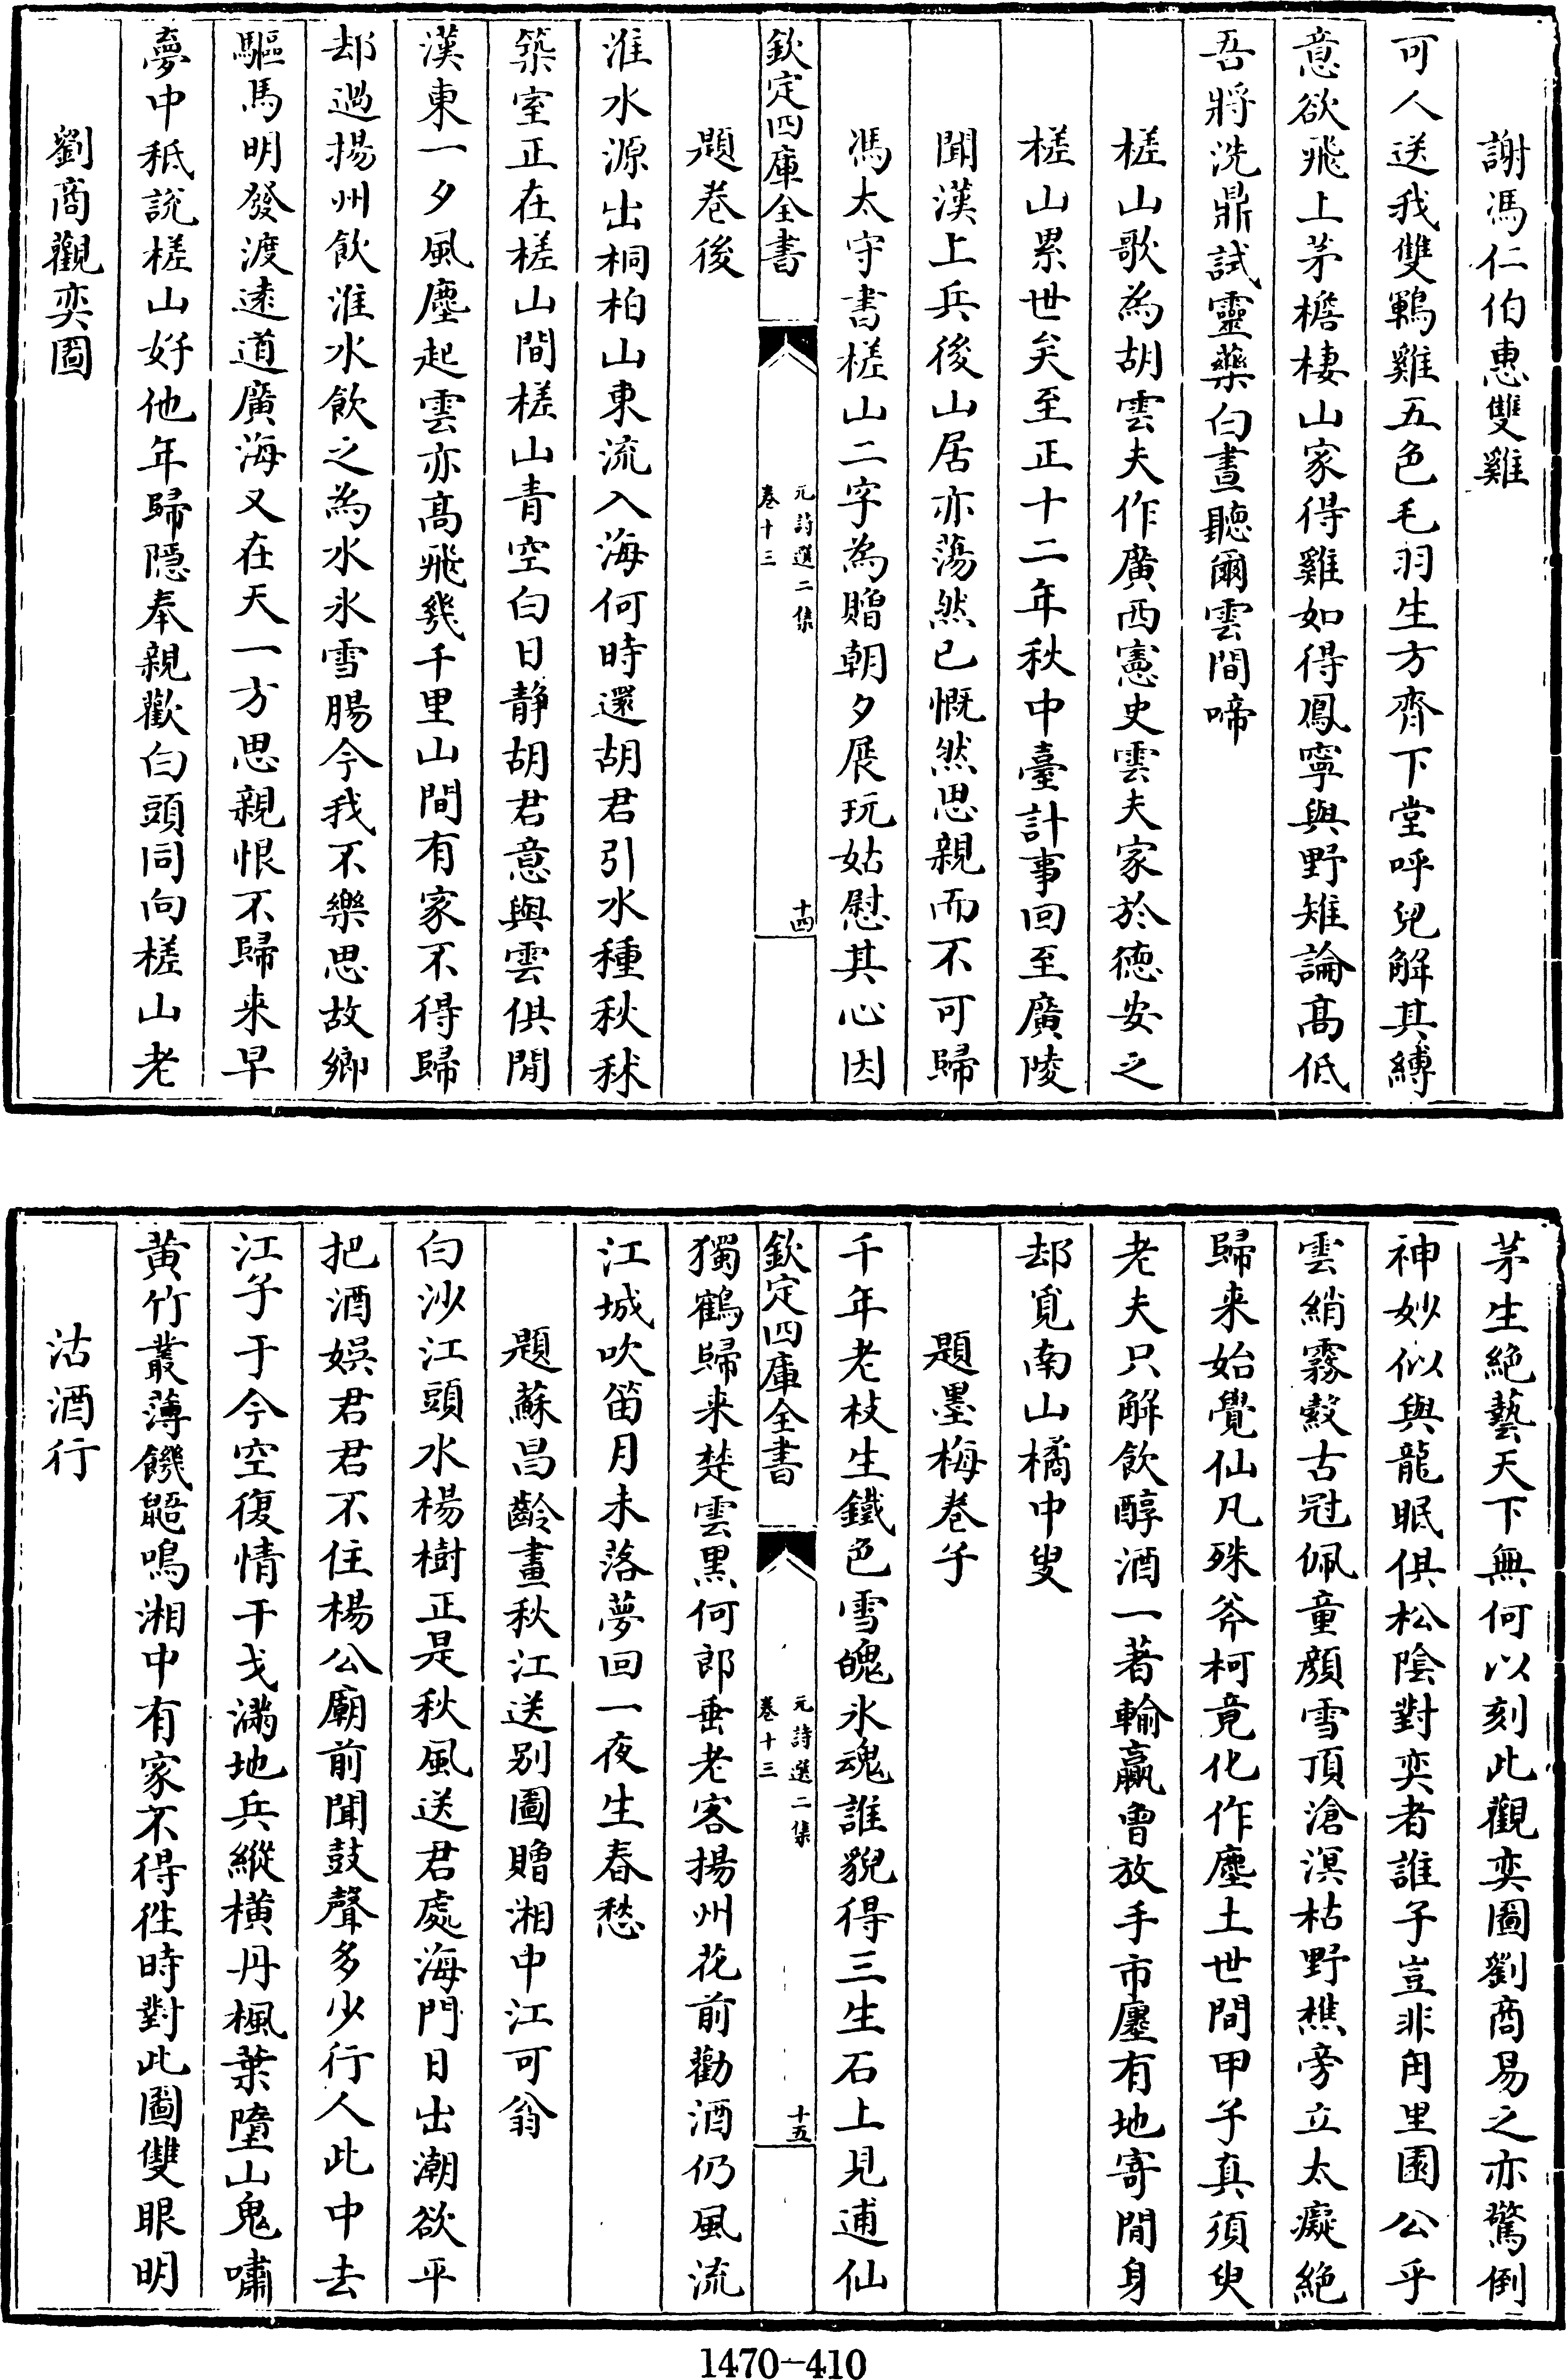 謝馮仁伯惠雙雞
可人送我雙鷤雞五色毛羽生方齊下堂呼兒解其縛
意欲飛上茅檐棲山家得雞如得鳳寧與野雉論髙低
吾將洗鼎試靈藥白晝聽爾雲間啼
槎山歌為胡雲夫作廣西憲史雲夫家於徳安之
槎山累世矣至正十二年秋中臺計事回至廣陵
聞漢上兵後山居亦蕩然已慨然思親而不可歸
馮太守書槎山二字為贈朝夕展玩姑慰其心因
欽定四庫全書
元詩選二集
卷十三
十四
題卷後
淮水源出桐柏山東流入海何時還胡君引水種秋秫
築室正在槎山間槎山青空白日静胡君意與雲俱閒
漢東一夕風塵起雲亦髙飛幾千里山間有家不得歸
却過揚州飲淮水飲之為水氷雪腸今我不樂思故鄉
驅馬明發渡逺道廣海又在天一方思親恨不歸来早
夢中秪說槎山好他年歸隠奉親歡白頭同向槎山老
劉商觀奕圖
茅生絶藝天下無何以刻此觀奕圖劉商易之亦驚倒
神妙似與龍眠俱松陰對奕者誰子豈非甪里園公乎
雲綃霧縠古冠佩童顔雪頂滄溟枯野樵旁立太癡絶
歸来始覺仙凡殊斧柯竟化作塵土世間甲子真須臾
老夫只解飲醇酒一著輸贏曾放手市廛有地寄閒身
却覓南山橘中叟
題墨梅卷子
千年老枝生鐵色雪魄氷魂誰貌得三生石上見逋仙
欽定四庫全書
元詩選二集
卷十三
十五
獨鶴歸来楚雲黒何郎垂老客揚州花前勸酒仍風流
江城吹笛月未落夢回一夜生春愁
題蘇昌齡畫秋江送别圖贈湘中江可翁
白沙江頭水楊樹正是秋風送君處海門日出潮欲平
把酒娯君君不住楊公廟前聞鼓聲多少行人此中去
江子于今空復情干戈滿地兵縱横丹楓葉墮山鬼嘯
黄竹叢薄饑鼯鳴湘中有家不得徃時對此圖雙眼明
沽酒行
1470-410